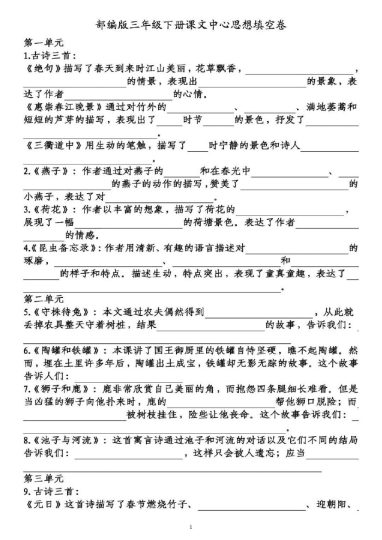 部编版三年级下册课文中心思想填空卷
第一单元
1.古诗三首:
《绝句》描写了春天到来时江山美丽,花草飘香,____________________,
____________________的情景,表现出____________________的景象,表
达了作者____________________的心情。
《惠崇春江晚景》通过对竹外的__________、__________、满地蒌蒿和
短短的芦芽的描写,表现出了____时节____的景色,抒发了__________
____________________。
《三衢道中》用生动的笔触,描写了____时宁静的景色和诗人__________
____________________。
2.《燕子》:作者通过对燕子的______和在春光中__________、____
____________________的燕子的动作的描写,赞美了____________________的
小燕子,表达了对____________________。
3.《荷花》:作者以丰富的想象,描写了荷花的____________________,
展现了一幅____________________的荷塘景色。表达了作者__________
__________的情感。
4.《昆虫备忘录》:作者用清新、有趣的语言描述对____________________的
琢磨,__________、____________________和__________
______的样子和特点。描述生动,特点突出,表现了童真童趣,表达了____
____________________。
第二单元
5.《守株待兔》:本文通过农夫偶然得到____________________,从此就
丢掉农具整天守着树桩,结果____________________的故事,告诉我们:____
____________________。
6.《陶罐和铁罐》:本课讲了国王御厨里的铁罐自恃坚硬,瞧不起陶罐。然
而,埋在土里许多年后,陶罐出土成宝,铁罐却无影无踪的故事。这个故事
告诉人们:____________________
7.《狮子和鹿》:鹿非常欣赏自己美丽的角,而抱怨四条腿细长难看。但是
当凶猛的狮子向他扑来时,鹿的____________________帮他狮口脱险;而____
____________________被树枝挂住,险些让他丧命。这个故事告诉我们:____
____________________。
8.《池子与河流》:这首寓言诗通过池子和河流的对话以及它们不同的结局
告诉我们:____________________,这样只会被人遗忘;应当__________
____________________。
第三单元
9.古诗三首:
《元日》这首诗描写了春节燃烧竹子、____________________、迎朝阳、
1